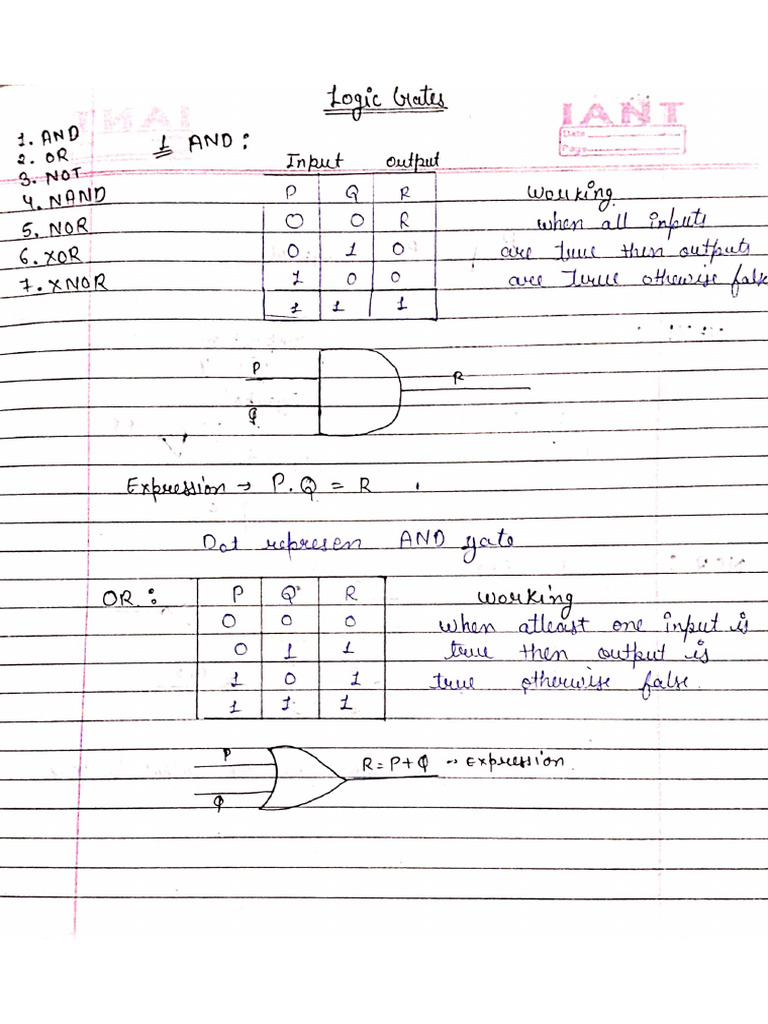 Logic Gates
IANT
Date
Page
1. AND
2. OR
3. NOT
4. NAND
5. NOR
6. XOR
7. XNOR
1 AND :
Input output
P Q R
0 0 R
0 1 0
1 0 0
1 1 1
Working
when all inputs
are true then outputs
are true otherwise false
P
R
Q
Expression → P.Q = R
Dot represen AND gate
OR :
P Q R
0 0 0
0 1 1
1 0 1
1 1 1
Working
when atleast one input is
true then output is
true otherwise false.
P
R = P+Q → Expression
Q